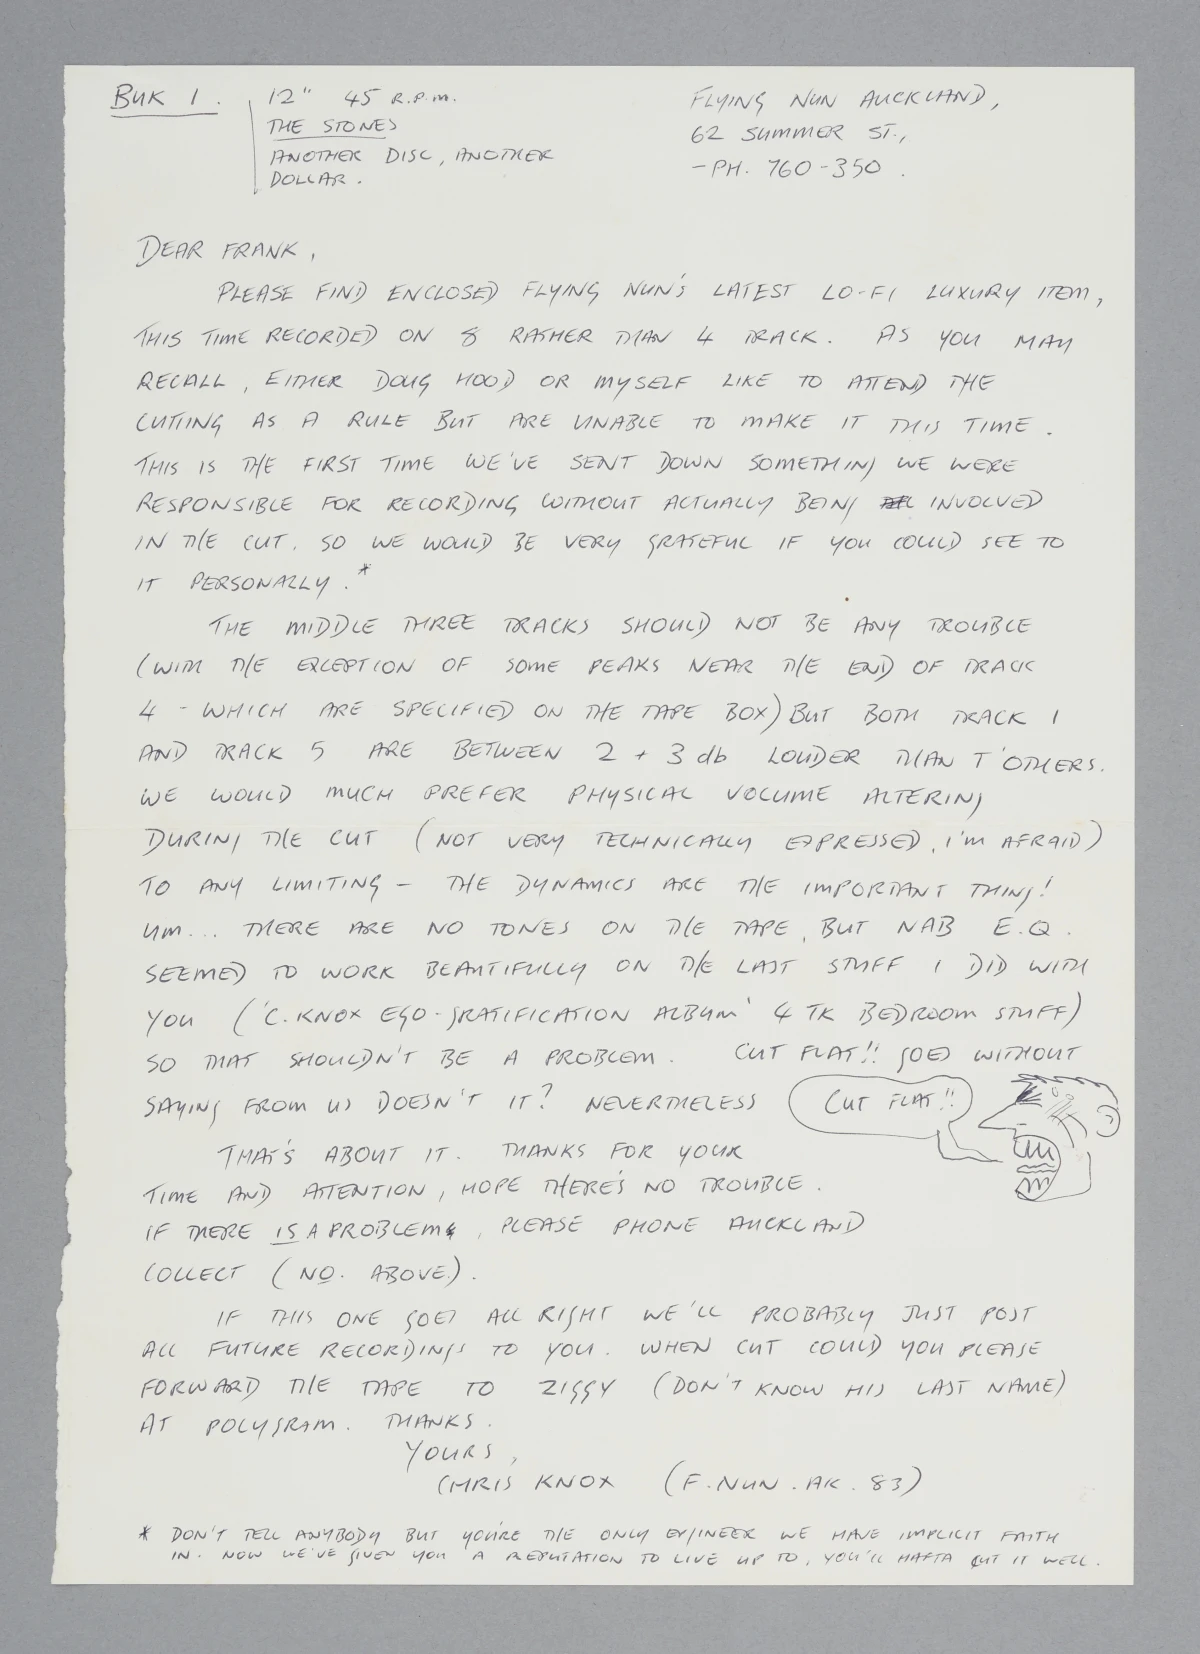 BUK 1.
12" 45 R.P.M.
THE STONES
ANOTHER DISC, ANOTHER
DOLLAR.
FLYING NUN AUCKLAND,
62 SUMMER ST.,
-PH. 760-350.
DEAR FRANK,
PLEASE FIND ENCLOSED FLYING NUN'S LATEST LO-FI LUXURY ITEM,
THIS TIME RECORDED ON 8 RATHER THAN 4 TRACK. AS YOU MAY
RECALL, EITHER DOUG HOOD OR MYSELF LIKE TO ATTEND THE
CUTTING AS A RULE BUT ARE UNABLE TO MAKE IT THIS TIME.
THIS IS THE FIRST TIME WE'VE SENT DOWN SOMETHING WE WERE
RESPONSIBLE FOR RECORDING WITHOUT ACTUALLY BEING INVOLVED
IN THE CUT. SO WE WOULD BE VERY GRATEFUL IF YOU COULD SEE TO
IT PERSONALLY.*
THE MIDDLE THREE TRACKS SHOULD NOT BE ANY TROUBLE
(WITH THE EXCEPTION OF SOME PEAKS NEAR THE END OF TRACK
4 - WHICH ARE SPECIFIED ON THE TAPE BOX) BUT BOTH TRACK 1
AND TRACK 5 ARE BETWEEN 2 + 3 db LOUDER THAN T'OTHERS.
WE WOULD MUCH PREFER PHYSICAL VOLUME ALTERING
DURING THE CUT (NOT VERY TECHNICALLY EXPRESSED, I'M AFRAID)
TO ANY LIMITING - THE DYNAMICS ARE THE IMPORTANT THING!
UM... THERE ARE NO TONES ON THE TAPE, BUT NAB E.Q.
SEEMED TO WORK BEAUTIFULLY ON THE LAST STUFF I DID WITH
YOU ('C. KNOX EGO-GRATIFICATION ALBUM' 4 TK BEDROOM STUFF)
SO THAT SHOULDN'T BE A PROBLEM. CUT FLAT!! GOES WITHOUT
SAYING FROM US DOESN'T IT? NEVERTHELESS CUT FLAT!!
THAT'S ABOUT IT. THANKS FOR YOUR
TIME AND ATTENTION, HOPE THERE'S NO TROUBLE.
IF THERE IS A PROBLEM, PLEASE PHONE AUCKLAND
COLLECT (NO. ABOVE).
IF THIS ONE GOES ALL RIGHT WE'LL PROBABLY JUST POST
ALL FUTURE RECORDINGS TO YOU. WHEN CUT COULD YOU PLEASE
FORWARD THE TAPE TO ZIGGY (DON'T KNOW HIS LAST NAME)
AT POLYGRAM. THANKS.
YOURS,
CHRIS KNOX (F. NUN. AK. 83)
* DON'T TELL ANYBODY BUT YOU'RE THE ONLY ENGINEER WE HAVE IMPLICIT FAITH
IN. NOW WE'VE GIVEN YOU A REPUTATION TO LIVE UP TO, YOU'LL HAFTA CUT IT WELL.